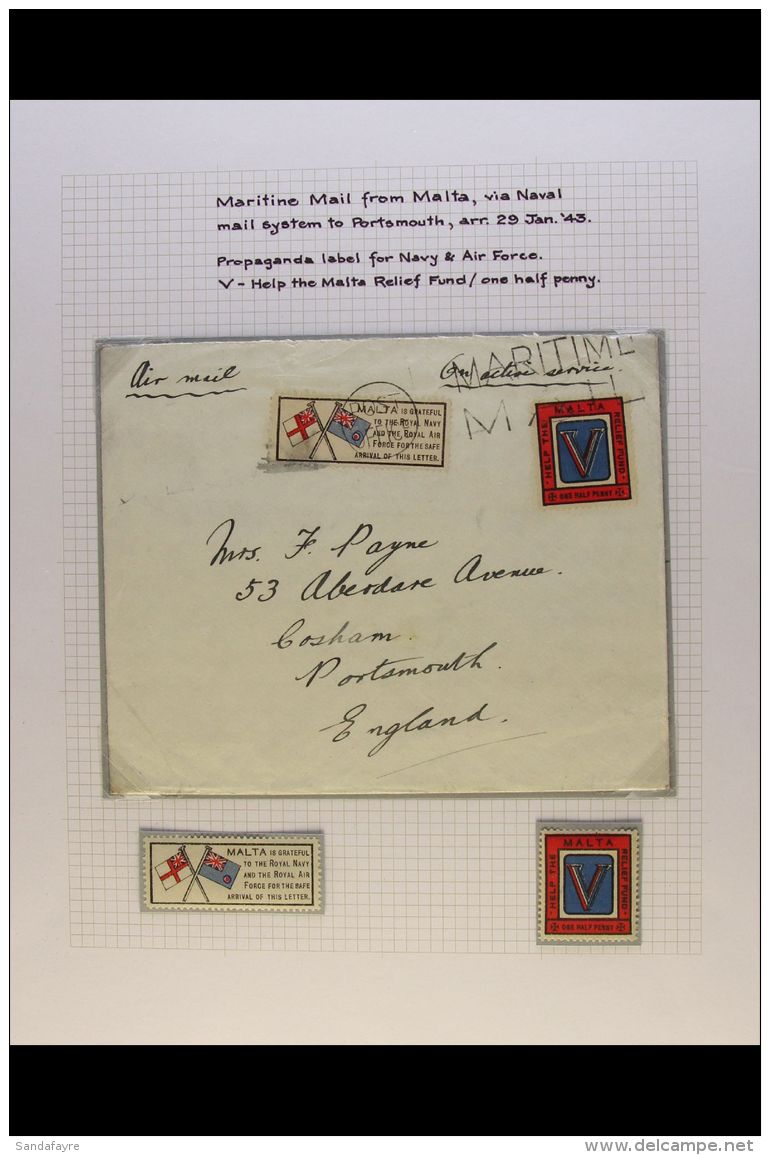 Maritine Mail from Malta, via Naval
mail system to Portsmouth, arr. 29 Jan. '43.
Propaganda label for Navy & Air Force.
V - Help the Malta Relief Fund / one half penny.
Air mail
On active service.
MARITIME
MAIL
POST
MALTA IS GRATEFUL
TO THE ROYAL NAVY
AND THE ROYAL AIR
FORCE FOR THE SAFE
ARRIVAL OF THIS LETTER.
MALTA
HELP THE
V
RELIEF FUND
ONE HALF PENNY
Mrs. F. Payne
53 Aberdare Avenue.
Cosham.
Portsmouth.
England.
MALTA IS GRATEFUL
TO THE ROYAL NAVY
AND THE ROYAL AIR
FORCE FOR THE SAFE
ARRIVAL OF THIS LETTER.
MALTA
HELP THE
V
RELIEF FUND
ONE HALF PENNY
Sandafayre
delcampe.net